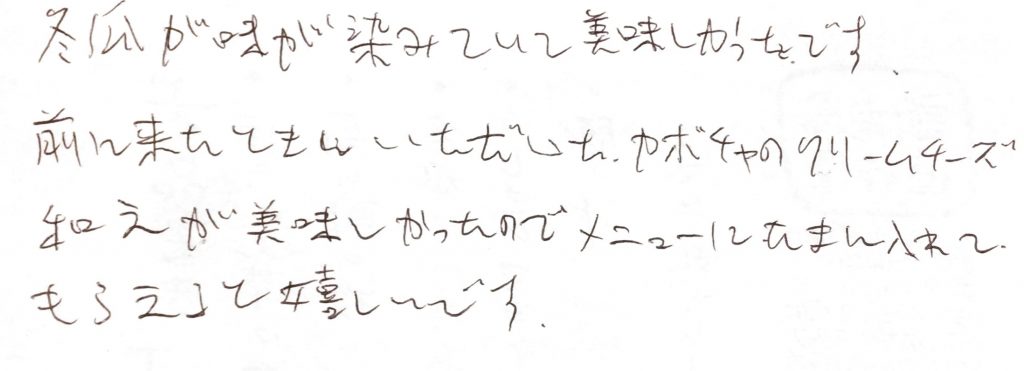 冬瓜が味が染みていて美味しかったです。
前に来たときにいただいた、カボチャのクリームチーズ
和えが美味しかったのでメニューにたまに入れて
もらえると嬉しいです。